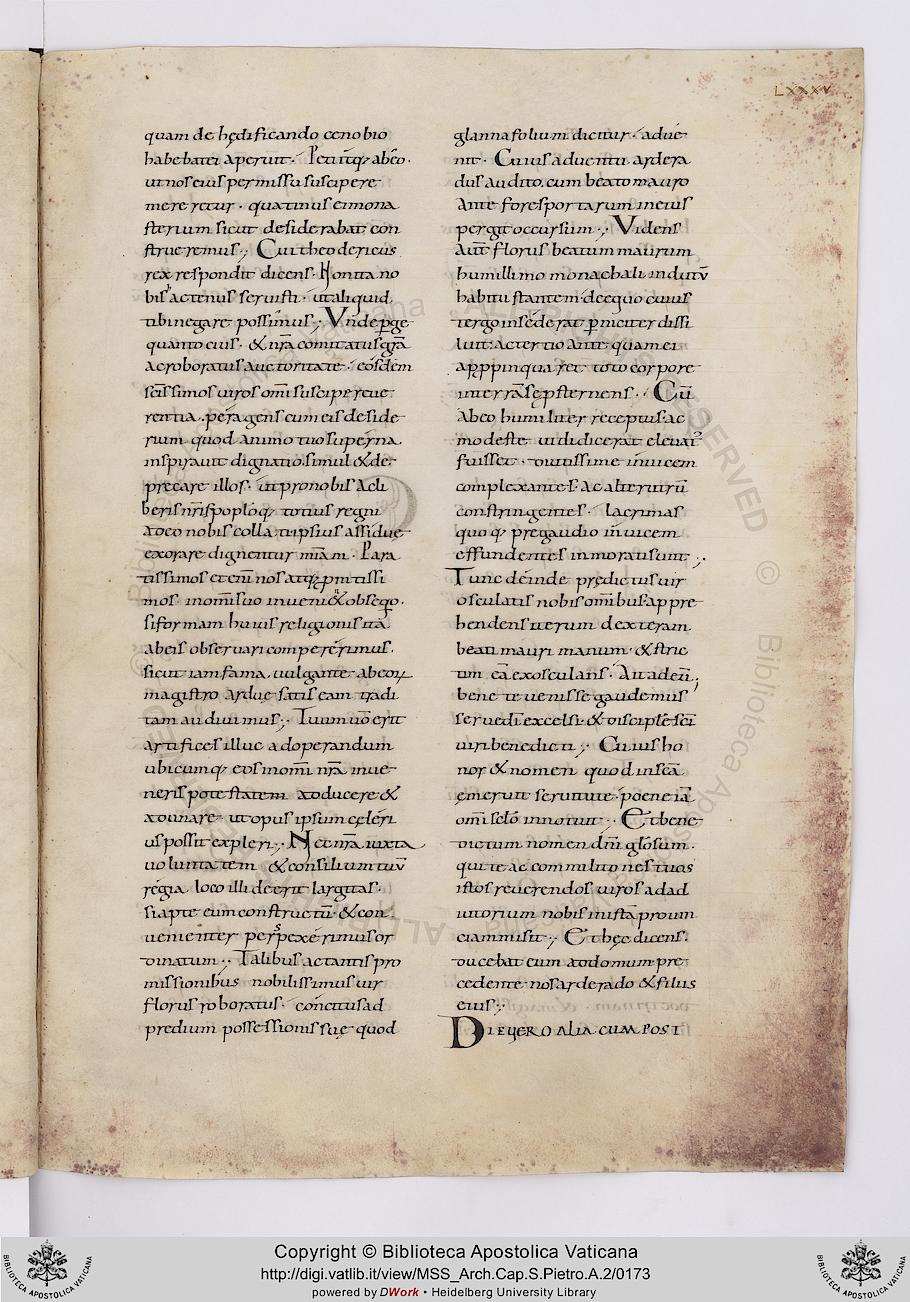 LXXXV
quam de hędificando cenobio
habebat ei aperuit · Petiitq; ab eo ·
ut nos eius permissu suscipere
mereretur · quatinus ei mona
sterium sicut desiderabat con
strueremus ; Cui theodericus
rex respondit dicens · Non ita no
bis actenus servisti · ut aliquid
tibi negare possimus ; Unde perge
quanto cius · & nrā comitatus grā
ac roboratus auctoritate · eosdem
scīssimos viros omī suscipe reve
rentia · peragens cum eis deside
rium quod animo tuo superna
inspiravit dignatio · simul & de
precare illos · ut pro nobis ac li
beris nrīs
totius regni
a deo nobis collati ipsius assidue
exorare dignentur miam · Para
tissimos etenim nos atq; promtissi
mos in omi suo inveni& obseqo ·
si formam huius religionis ita
ab eis observari compererimus ·
sicut iam fama vulgante ab eorum
magistro ardue satis eam tradi
tam audivimus ; Tuum vō erit
artifices illuc ad operandum
ubicumq; eos in omī nrā inve
neris potestatem adducere &
adunare · ut opus ipsum celeri
us possit expleri ; Nec nrā iuxta
voluntatem & consilium tuū
regia loco illi deerit largitas ·
si apte eum constructū · & con
venienter perspexerimus or
dinatum ; Talibus ac tantis pro
missionibus nobilissimus vir
florus roboratus · concitus ad
predium possessionis suę quod
glannafolium dicitur · adve
nit · Cuius adventu ardera
dus audito · cum beato mauro
ante fores portarum in eius
pergit occursum ; Videns
aut florus beatum maurum
humillimo monachali indutū
habitu stantem · de equo cuius
tergo insederat perniciter dissi
luit · ac tertio antequam ei
appropinquaret · toto corpore
in terra se psternens · Cū
ab eo humiliter receptus ac
modeste uti didicerat elevatus
fuisset · diutissime invicem
complexantes · ac alterutrū
constringentes · lacrimas
quoq; pre gaudio invicem
effundentes inmorati sunt ;
Tunc deinde predictus vir
osculatis nobis omībus appre
hendens iterum dexteram
beati mauri manum · & stric
tim eā exosculans · Ait ad eū ;
bene te venisse gaudemus
serve dei excelsi · & disciple scī
viri benedicti ; Cuius ho
nor & nomen quod in scā
emeruit servitute · poene iā
omī sclo innotuit ; Et bene
dictum nomen dnī glosum ·
qui te ac commilitones tuos
istos reverendos viros ad ad
iutorium nobis in ista provin
cia misit ; Et hęc dicens ·
ducebat eum ad domum pre
cedente nos arderado & filus
eius ;
DIE VERO ALIA CUM POST
Copyright © Biblioteca Apostolica Vaticana
http://digi.vatlib.it/view/MSS_Arch.Cap.S.Pietro.A.2/0173
powered by DWork • Heidelberg University Library